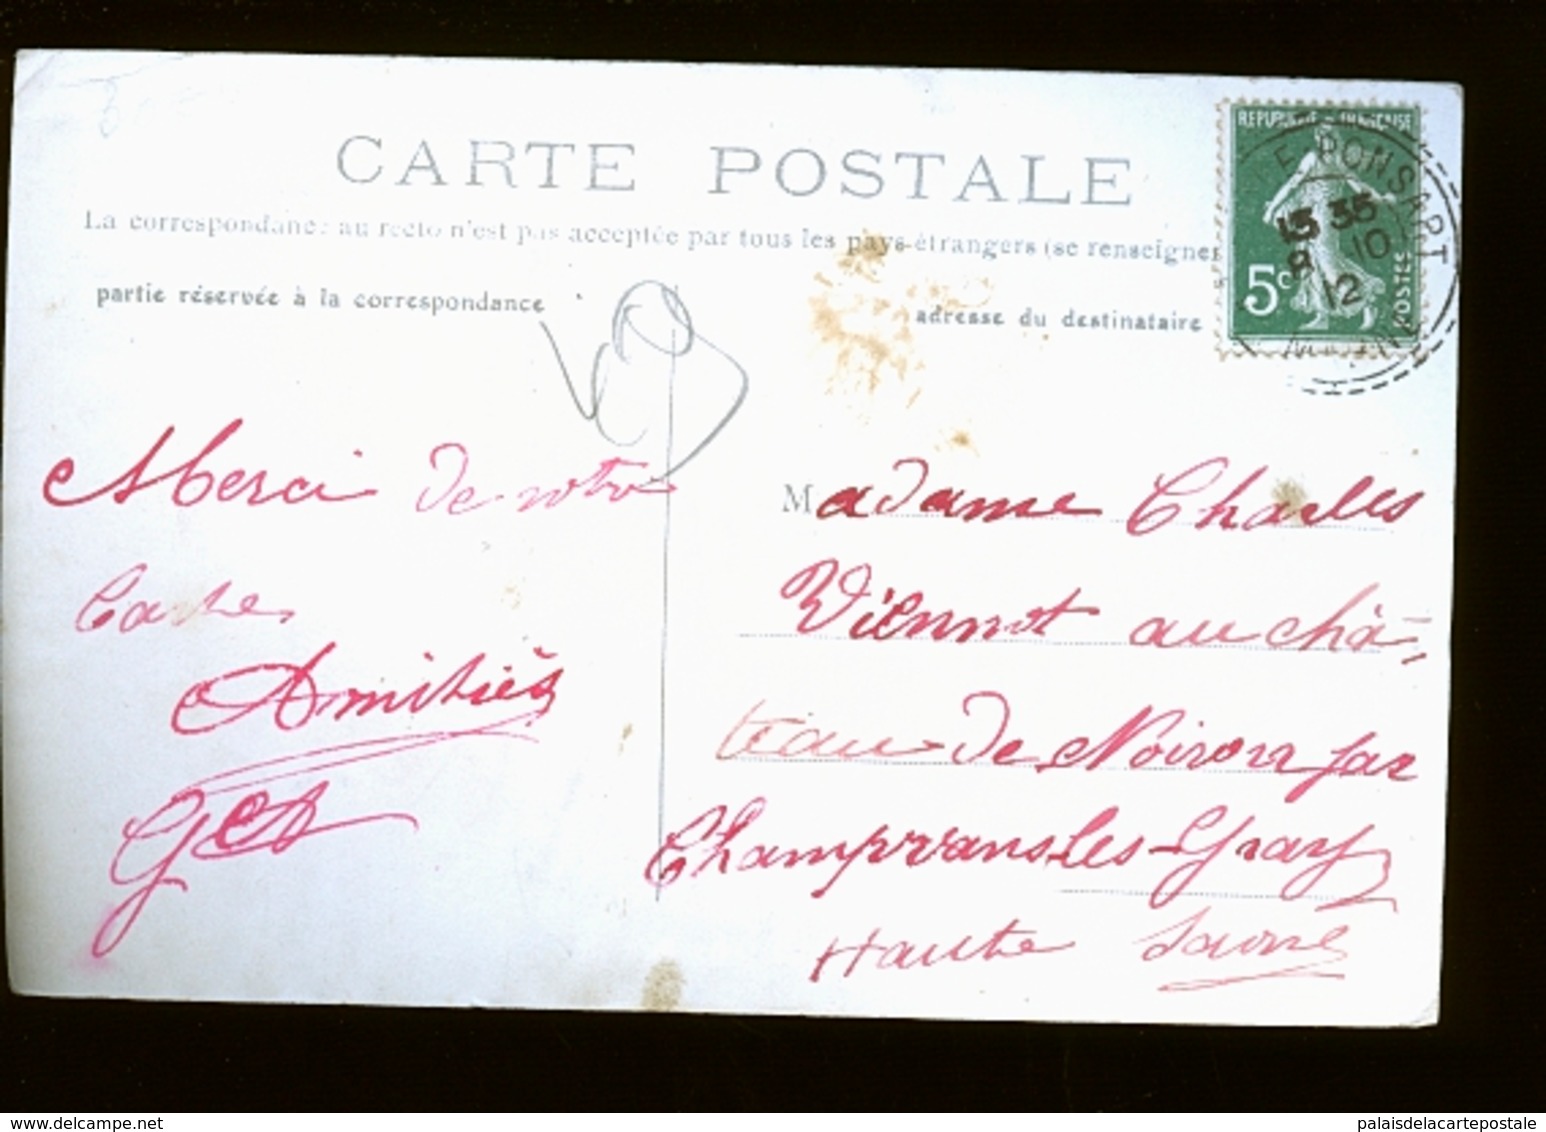 CARTE POSTALE
La correspondance au recto n'est pas acceptée par tous les pays étrangers (se renseigner
partie réservée à la correspondance
adresse du destinataire
REPUBLIQUE FRANÇAISE
5c
POSTES
E-PONSART
15 35
8 10
12
MARNE
Merci de votre
Cartes
Amitiés
Madame Charles
Viennot au châ-
teau de Noiron par
Champvans-les-Gray
Haute Saone
www.delcampe.net
palaisdelacartepostale